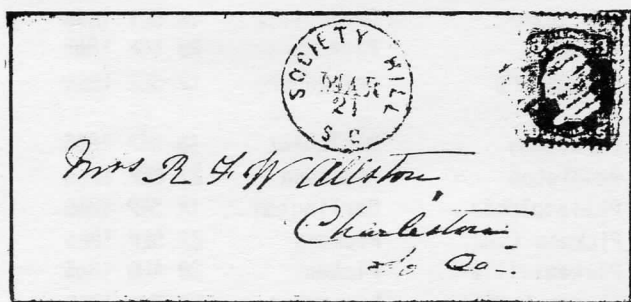 SOCIETY HILL
MAR
21
S C
Mrs R F W Allston
Charleston
So Ca-.